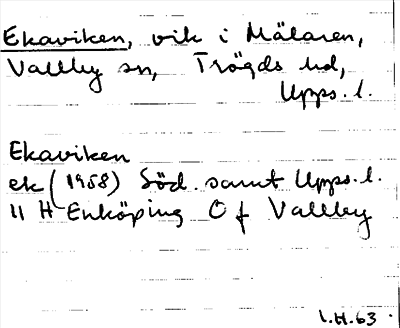 Ekaviken, vik i Mälaren,
Vallby sn, Trögds hd,
Upps. l.
Ekaviken
ek (1958) Söd. samt Upps. l.
11 H Enköping Of Vallby
I.H.63